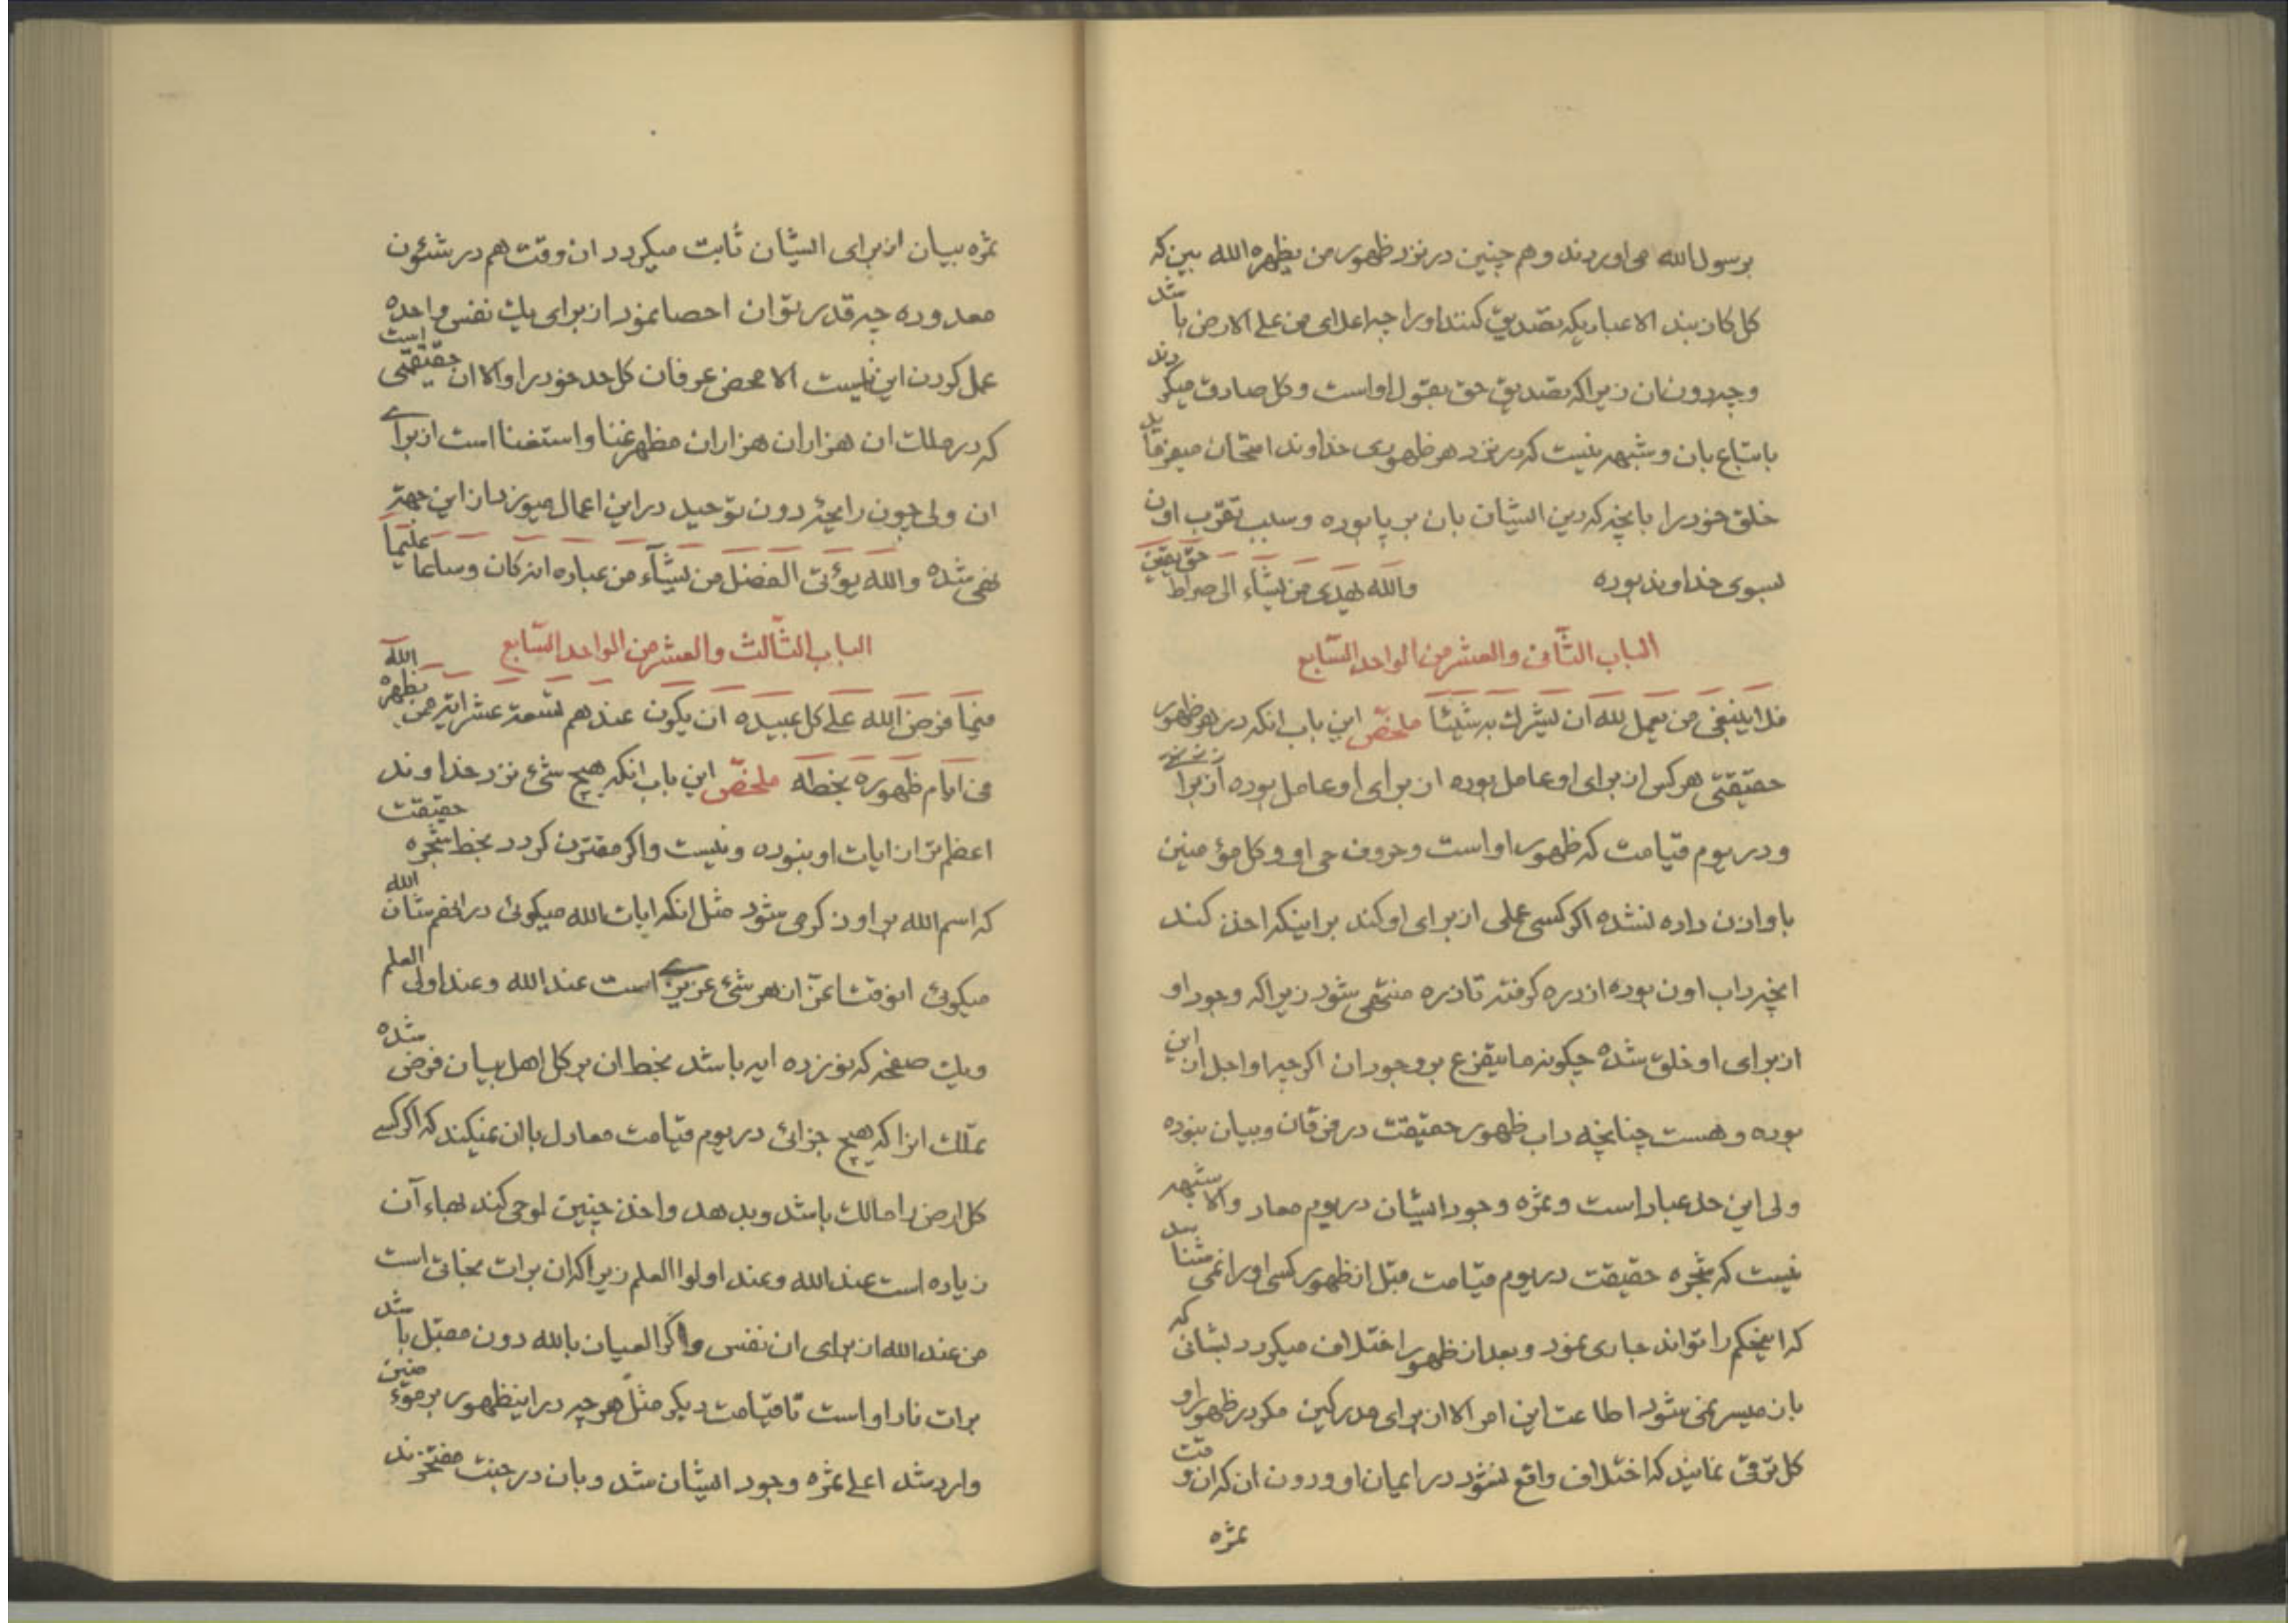 برسول الله می اوردند و هم چنین در نزد ظهور من یظهره الله بین که
کل کاذبند الا عبادیکه تصدیق کنند او را چه اعلای من علی الارض باشد
و چه دون ان زیرا که تصدیق حق بقول او است و کل صادق میکردند
باتباع بان و شبهه نیست که در نزد هر ظهوری خداوند امتحان میفرماید
خلق خود را بانچه که دین ایشان بان بر پا بوده و سبب تقرب اون
بسوی خداوند بوده والله یهدی من یشاء الی صراط حق یقین
الباب الثانی والعشر من الواحد السابع
فلا ینبغی من یعمل لله ان یشرک به شیئا ملخص این باب انکه در هر ظهور
حقیقتی هر کس از برای او عامل بوده از برای او عامل بوده از برا
و در یوم قیامت که ظهور او است و حروف حی او و کل مؤمنین
باو اذن داده نشده اکر کسی عملی از برای او کند بر اینکه اخذ کند
انچه داب اون بوده از دره کرفته تا ذره منتهی شود زیرا که وجود او
از برای او خلق شده چکونه ما یتفرع بر وجود ان اکر چه او اجل از این
بوده و هست چنانچه داب ظهور حقیقت در فرقان و بیان نبوده
ولی این حد عباد است و ثمره وجود ایشان در یوم معاد و الا شبهه
نیست که شجره حقیقت در یوم قیامت قبل از ظهور کسی او را نمی شناسد
که اینحکم را تواند جاری نمود و بعد از ظهور اختلاف میکردد بشانی که
بان میسر نمی شود اطاعت این امر الا از برای مدرکین مکر در ظهور او
کل ترقی نمایند که اختلاف واقع نشود در ایمان او و دون ان که ان وقت
ثمره
ثمره بیان از برای ایشان ثابت میکردد ان وقت هم در شئون
معدوده چه قدر توان احصا نمود از برای یک نفس واحده
عمل کردن این نیست الا محض عرفان کل حد خود را و الا ان حقیقتی است
که در ملک ان هزاران هزاران مظهر غنا و استغنا است از برای
ان ولی چون رایحه دون توحید در این اعمال میوزد از این جهة
نهی شده والله یؤتی الفضل من یشآء من عباده انه کان وساعا علیما
الباب الثالث والعشر من الواحد السابع
فیما فرض الله علی کل عبیده ان یکون عندهم تسعة عشر ایة من یظهره الله
فی ایام ظهوره بخطه ملخص این باب انکه هیچ شیء نزد خداوند
اعظم تر از ایات او نبوده و نیست و اکر مقترن کردد بخط شجره حقیقت
که اسم الله بر او ذکر می شود مثل انکه ایات الله میکوئی در انهم شان الله
میکوئی انوقت اعز از هر شیء عزیزی است عند الله و عند اولی العلم
و یک صفحه که نوزده ایه باشد بخط ان بر کل اهل بیان فرض شده
تملک انرا که هیچ جزائی در یوم قیامت معادل با ان نمیکند که اکر کسی
کل ارض را مالک باشد و بدهد و اخذ چنین لوحی کند بهاء آن
زیاده است عند الله و عند اولوا العلم زیرا که ان برات نجاتی است
من عند الله از برای ان نفس و اکر العیان بالله دون مقبل باشد
برات نار او است تا قیامت دیکر مثل هر چه در اینظهور بر مؤمنین
وارد شد اعلی ثمره وجود ایشان شد و بان در جنت مفتخرند